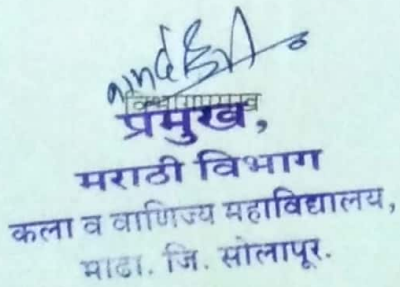 विभागप्रमुख
प्रमुख,
मराठी विभाग
कला व वाणिज्य महाविद्यालय,
माढा. जि. सोलापूर.